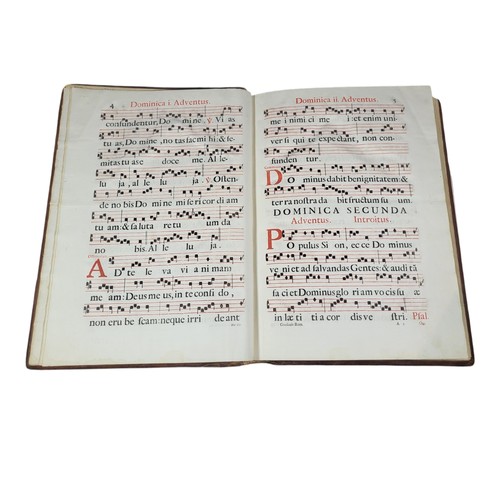 4 Dominica i Adventus.
confundentur, Do mi ne. ℣. Vi as
tu as, Domine, no tas fac mi hi: & se-
mitas tu as e doce me. Al le-
lu ja, al le lu ja. ℣. Osten-
de no bis Do mine mi se ri cor di am
tu am: & sa luta re tu um da
no bis. Al le lu ja.
AD te le va vi a ni mam
me am: Deus me us, in te con fi do,
non eru be scam: ne que ir ri de ant
Dominica ii Adventus.
me i ni mi ci me i: et enim uni-
ver si qui te ex pectant, non con-
fun den tur.
DO minus dabit benignitatem: &
ter ra nostra da bit fructum su um.
DOMINICA SECUNDA
Adventus. Introitus.
PO pulus Si on, ec ce Dominus
ve ni et ad salvandas Gentes: & audi tā
fa ci et Dominus glori am vo cis su æ
in læ ti ti a cor dis ve stri. Psal